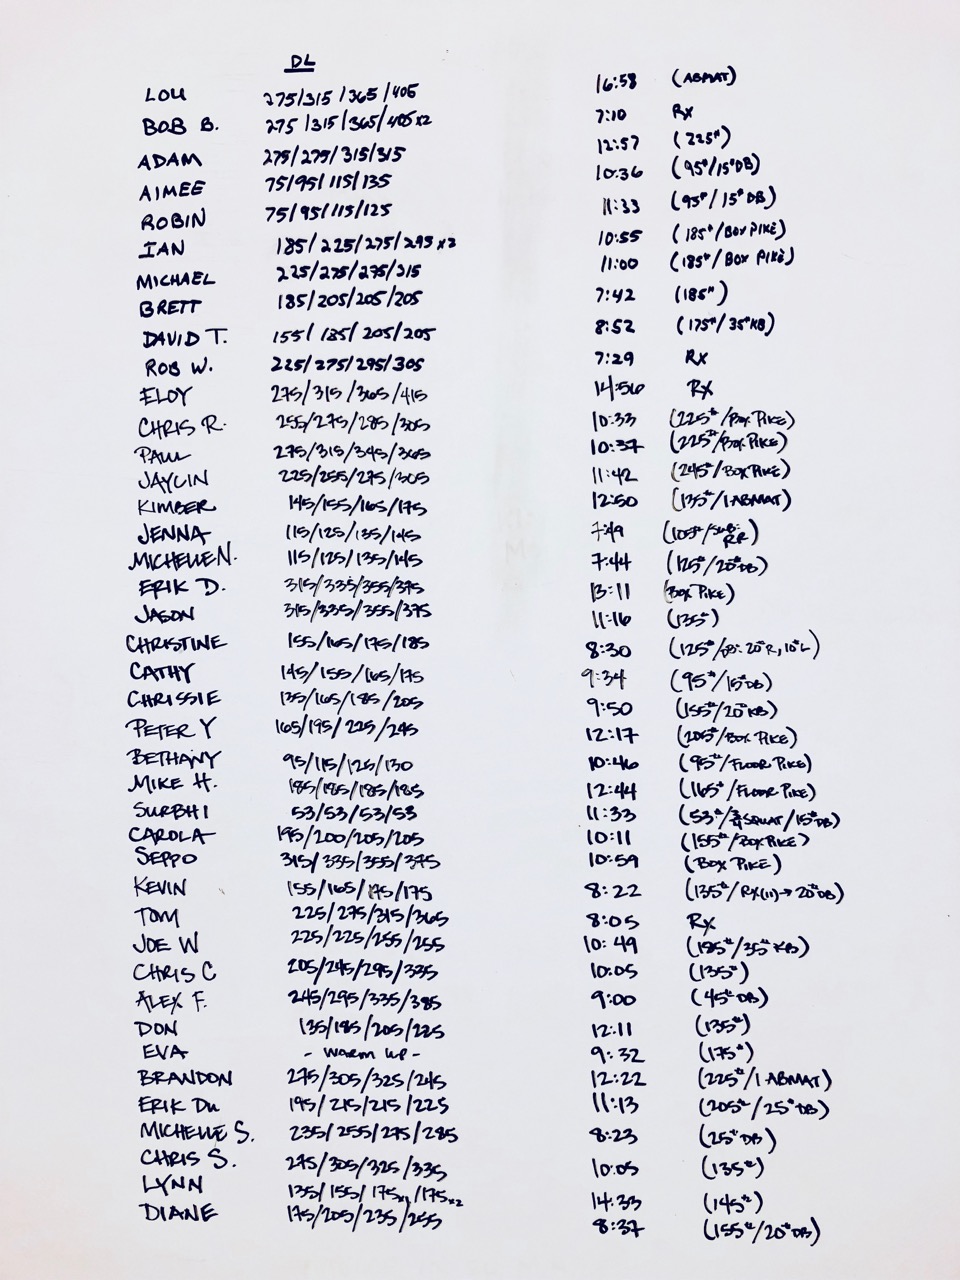 DL
LOU 275/315/365/405 16:58 (ABMAT)
BOB B. 275/315/365/405x2 7:10 Rx
ADAM 275/275/315/315 12:57 (225#)
AIMEE 75/95/115/135 10:36 (95#/15#DB)
ROBIN 75/95/115/125 11:33 (95#/15#DB)
IAN 185/225/275/295x2 10:55 (185#/BOX PIKE)
MICHAEL 225/275/275/315 11:00 (185#/BOX PIKE)
BRETT 185/205/205/205 7:42 (185#)
DAVID T. 155/185/205/205 8:52 (175#/35#KB)
ROB W. 225/275/295/305 7:29 Rx
ELOY 275/315/365/415 14:56 RX
CHRIS R. 255/275/285/305 10:33 (225#/BOX PIKE)
PAUL 275/315/345/365 10:37 (225#/BOX PIKE)
JAYLIN 225/255/275/305 11:42 (245#/BOX PIKE)
KIMBER 145/155/165/175 12:50 (135#/1 ABMAT)
JENNA 115/125/135/145 7:49 (105#/SUB: RR)
MICHELLE N. 115/125/135/145 7:44 (125#/20#DB)
ERIK D. 315/335/355/375 13:11 (BOX PIKE)
JASON 315/335/355/375 11:16 (135#)
CHRISTINE 155/165/175/185 8:30 (125#/ 20#R, 10#L)
CATHY 145/155/165/175 9:34 (95#/15#DB)
CHRISSIE 135/165/185/205 9:50 (155#/20#KB)
PETER Y 165/195/225/245 12:17 (205#/BOX PIKE)
BETHANY 95/115/125/130 10:46 (95#/FLOOR PIKE)
MIKE H. 185/185/185/185 12:44 (165#/FLOOR PIKE)
SURBHI 53/53/53/53 11:33 (53#/¾ SQUAT/15#DB)
CAROLA 195/200/205/205 10:11 (155#/BOX PIKE)
SEPPO 315/335/355/375 10:59 (BOX PIKE)
KEVIN 155/165/175/175 8:22 (135#/RX(11)→20#DB)
TOM 225/275/315/365 8:05 RX
JOE W 225/225/255/255 10:49 (185#/35#KB)
CHRIS C 205/245/295/335 10:05 (135#)
ALEX F. 245/295/335/385 9:00 (45#DB)
DON 135/185/205/225 12:11 (135#)
EVA - WARM UP - 9:32 (175#)
BRANDON 275/305/325/245 12:22 (225#/1 ABMAT)
ERIK Du 195/215/215/225 11:13 (205#/25#DB)
MICHELLE S. 235/255/275/285 8:23 (25#DB)
CHRIS S. 275/305/325/335 10:05 (135#)
LYNN 135/155/175x1/175x2 14:33 (145#)
DIANE 175/205/235/255 8:37 (155#/20#DB)